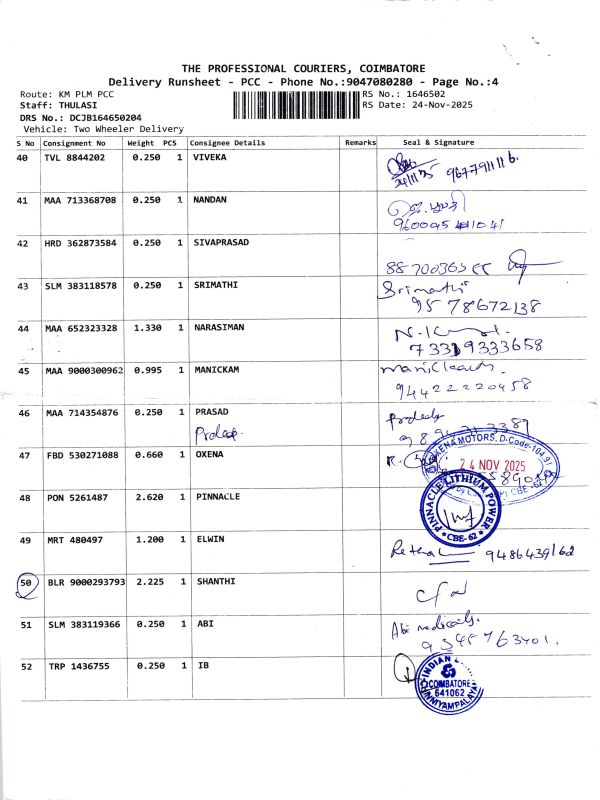 THE PROFESSIONAL COURIERS, COIMBATORE
Delivery Runsheet - PCC - Phone No.:9047080280 - Page No.:4
Route: KM PLM PCC RS No.: 1646502
Staff: THULASI RS Date: 24-Nov-2025
DRS No.: DCJB164650204
Vehicle: Two Wheeler Delivery
S No Consignment No Weight PCS Consignee Details Remarks Seal & Signature
40 TVL 8844202 0.250 1 VIVEKA
24/11/25 9677911116.
41 MAA 713368708 0.250 1 NANDAN
42 HRD 362873584 0.250 1 SIVAPRASAD
43 SLM 383118578 0.250 1 SRIMATHI Srimathi
9578672138
44 MAA 652323328 1.330 1 NARASIMAN
7339333658
45 MAA 9000300962 0.995 1 MANICKAM
9442220458
46 MAA 714354876 0.250 1 PRASAD
47 FBD 530271088 0.660 1 OXENA
OXENA MOTORS, D-Code-10491
24 NOV 2025
CBE-62
48 PON 5261487 2.620 1 PINNACLE
PINNACLE LITHIUM POWER
CBE-62
49 MRT 480497 1.200 1 ELWIN
9486439162
50 BLR 9000293793 2.225 1 SHANTHI
51 SLM 383119366 0.250 1 ABI Abi medicals.
9345763401.
52 TRP 1436755 0.250 1 IB
INDIAN
COIMBATORE
641062